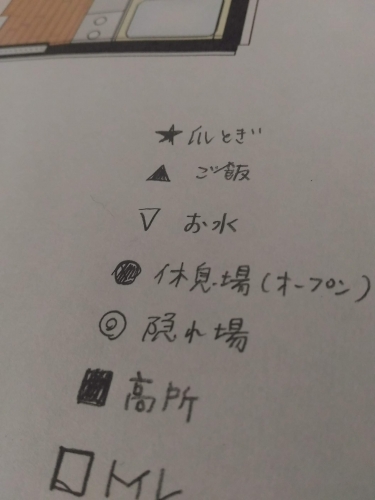 ★ 爪とぎ
▲ ご飯
▽ お水
● 休息場(オープン)
◎ 隠れ場
■ 高所
□ トイレ